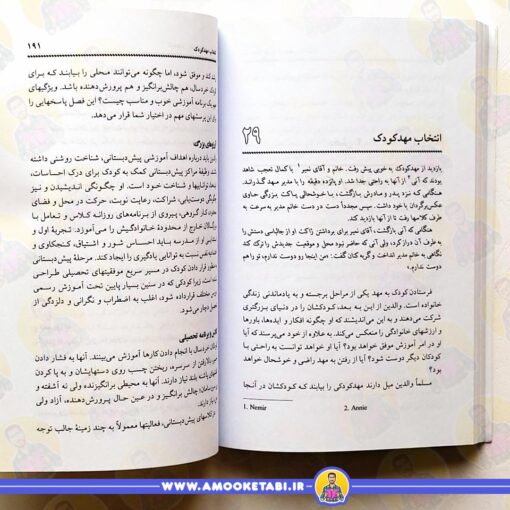 ۲۹
انتخاب مهدکودک
بازدید از مهدکودک به خوبی پیش رفت. خانم و آقای نمیر۱ با کمال تعجب شاهد
بودند که آنی۲ از آنها به راحتی جدا شد. او پانزده دقیقه را با مدیر مهد گذراند.
هنگامی که نزد پدر و مادرش بازگشت، با خوشحالی پاکت بزرگی حاوی
عکس‌برگردان با خود داشت. سپس مجدداً دست در دست خانم مدیر به سرعت به
طرف کلاسها رفت تا از آنها بازدید کند.
هنگامی که آنی بازگشت، آقای نمیر برای برداشتن ژاکت او از چوب‌لباسی دستش را
به طرف آن دراز کرد، ولی آنی که حاضر نبود محل و موقعیت جدیدش را ترک کند
نگاهی به خانم مدیر انداخت و گریه کنان گفت: «من اینجا رو دوست دارم، تو را هم
دوست ندارم.»
فرستادن کودک به مهد یکی از مراحل برجسته و به یادماندنی زندگی
خانواده است. والدین از این به بعد، کودکشان را در دنیای بزرگتری
شرکت می‌دهند و به این می‌اندیشند که او چگونه افکار و ایده‌ها، باورها
و ارزشهای خانوادگی را منعکس می‌کند. به علاوه از خود می‌پرسند که آیا
او در امر آموزش موفق خواهد بود؟ آیا او خواهد توانست به راحتی با
کودکان دیگر دوست شود؟ آیا از رفتن به مهد راضی و خوشحال خواهد
بود؟
مسلماً والدین میل دارند مهدکودکی را بیابند که کودکشان در آنجا
1. Nemir 2. Annie
انتخاب مهدکودک ۱۹۱
کند و موفق شود، اما چگونه می‌توانند محلی را بیابند که برای
خردسال، هم چالش‌برانگیز و هم پرورش‌دهنده باشد. ویژگیهای
یک برنامه آموزشی خوب و مناسب چیست؟ این فصل پاسخهایی را
این پرسشهای مهم در اختیار شما قرار می‌دهد.
بزرگ
باید درباره اهداف آموزشی پیش‌دبستانی، شناخت روشنی داشته
وظیفه مراکز پیش‌دبستانی کمک به کودک برای درک احساسات،
تواناییها و شناخت خود است. او چگونگی اندیشیدن و نیز
اجتماعی، شراکت، رعایت نوبت، حرکت در محل و فضای
گروهی، پیروی از برنامه‌های روزانه کلاس و تعامل با
خارج از محدوده خانوادگیش را می‌آموزد. تجربه اول و
او از مدرسه باید احساس شور و اشتیاق، کنجکاوی و
نفس نسبت به توانایی یادگیری را ایجاد کند. مرحله پیش‌دبستانی
قرار دادن کودک در مسیر سریع موفقیتهای تحصیلی طراحی
زیرا کودکی که در سنین بسیار پایین تحت آموزش رسمی
مختلف قرار داده شود، اغلب به اضطراب و نگرانی و دلزدگی از
دچار می‌شود.
برنامه تحصیلی
خردسال با انجام دادن کارها آموزش می‌بینند. آنها به فشار دادن
بالا رفتن از سرسره، ریختن چسب روی دستهایشان و به پا کردن
پاشنه بلند نیاز دارند. آنها به محیطی برانگیزنده ولی نه آشفته و
چالش‌برانگیز و در عین حال پرورش‌دهنده، آزاد ولی
دارند.
کلاسهای پیش‌دبستانی، فعالیتها معمولاً به چند زمینهٔ جالب توجه
WWW.AMOOKETABI.IR